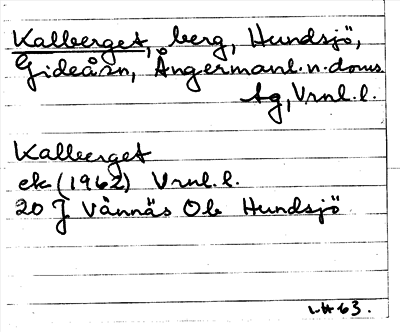 Kalberget, berg, Hundsjö,
Gideåsn, Ångermanl.n.doms.
tg, Vrnl.l.
Kalberget
ek (1962) Vrnl.l.
20 J Vännäs Ob Hundsjö
63.